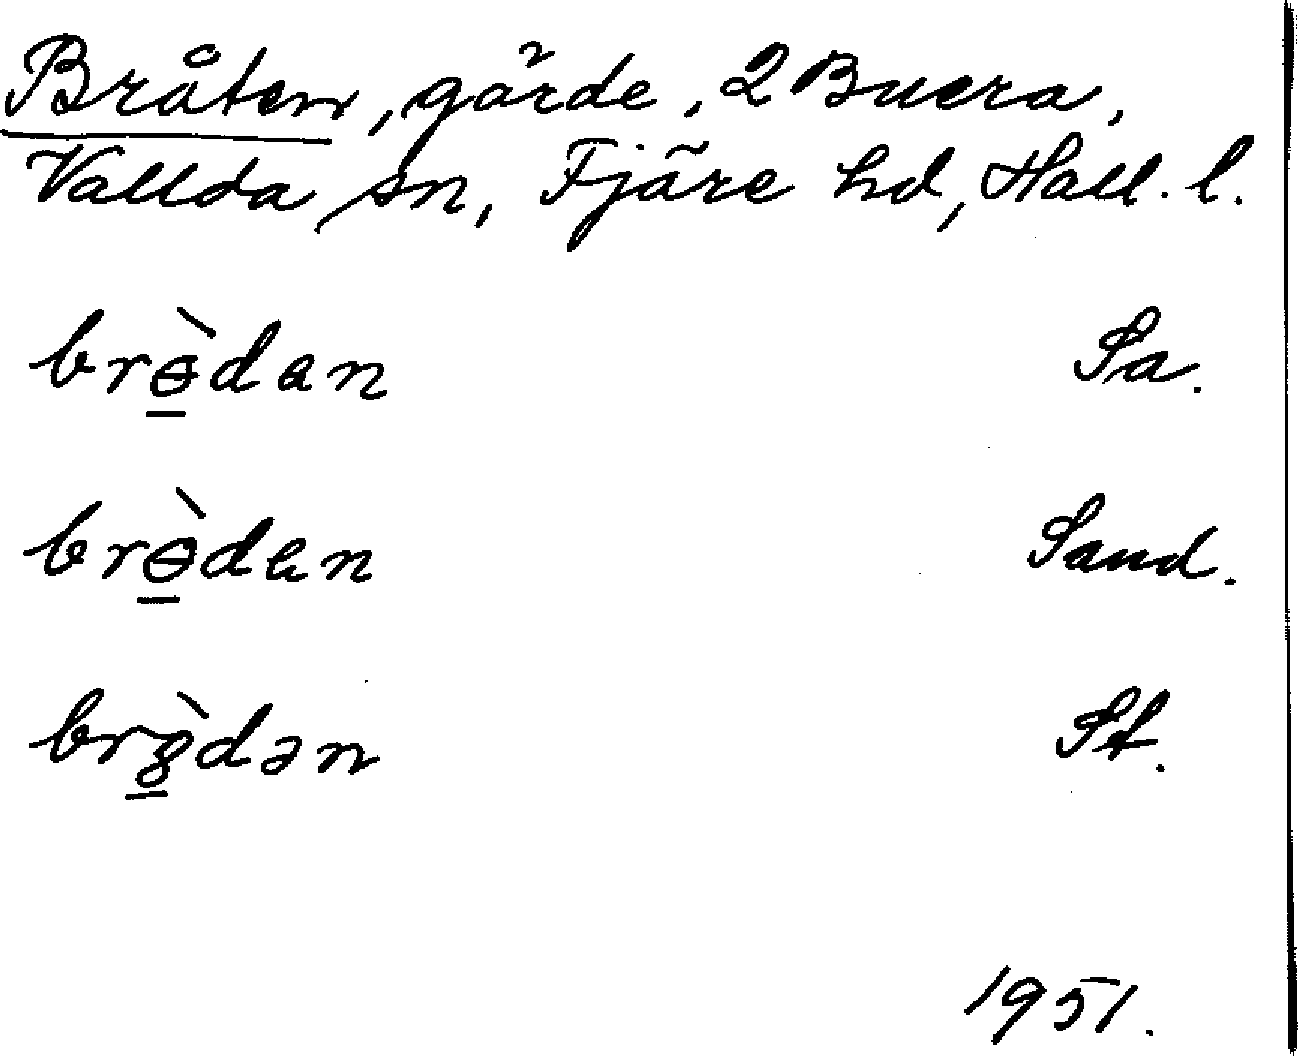 Bråten, gärde, 2 Buera,
Vallda sn, Fjäre hd, Hall. l.
brɵ̲̀dan Sa.
brɵ̲̀dan Sand.
br8̲̀dən St.
1951.